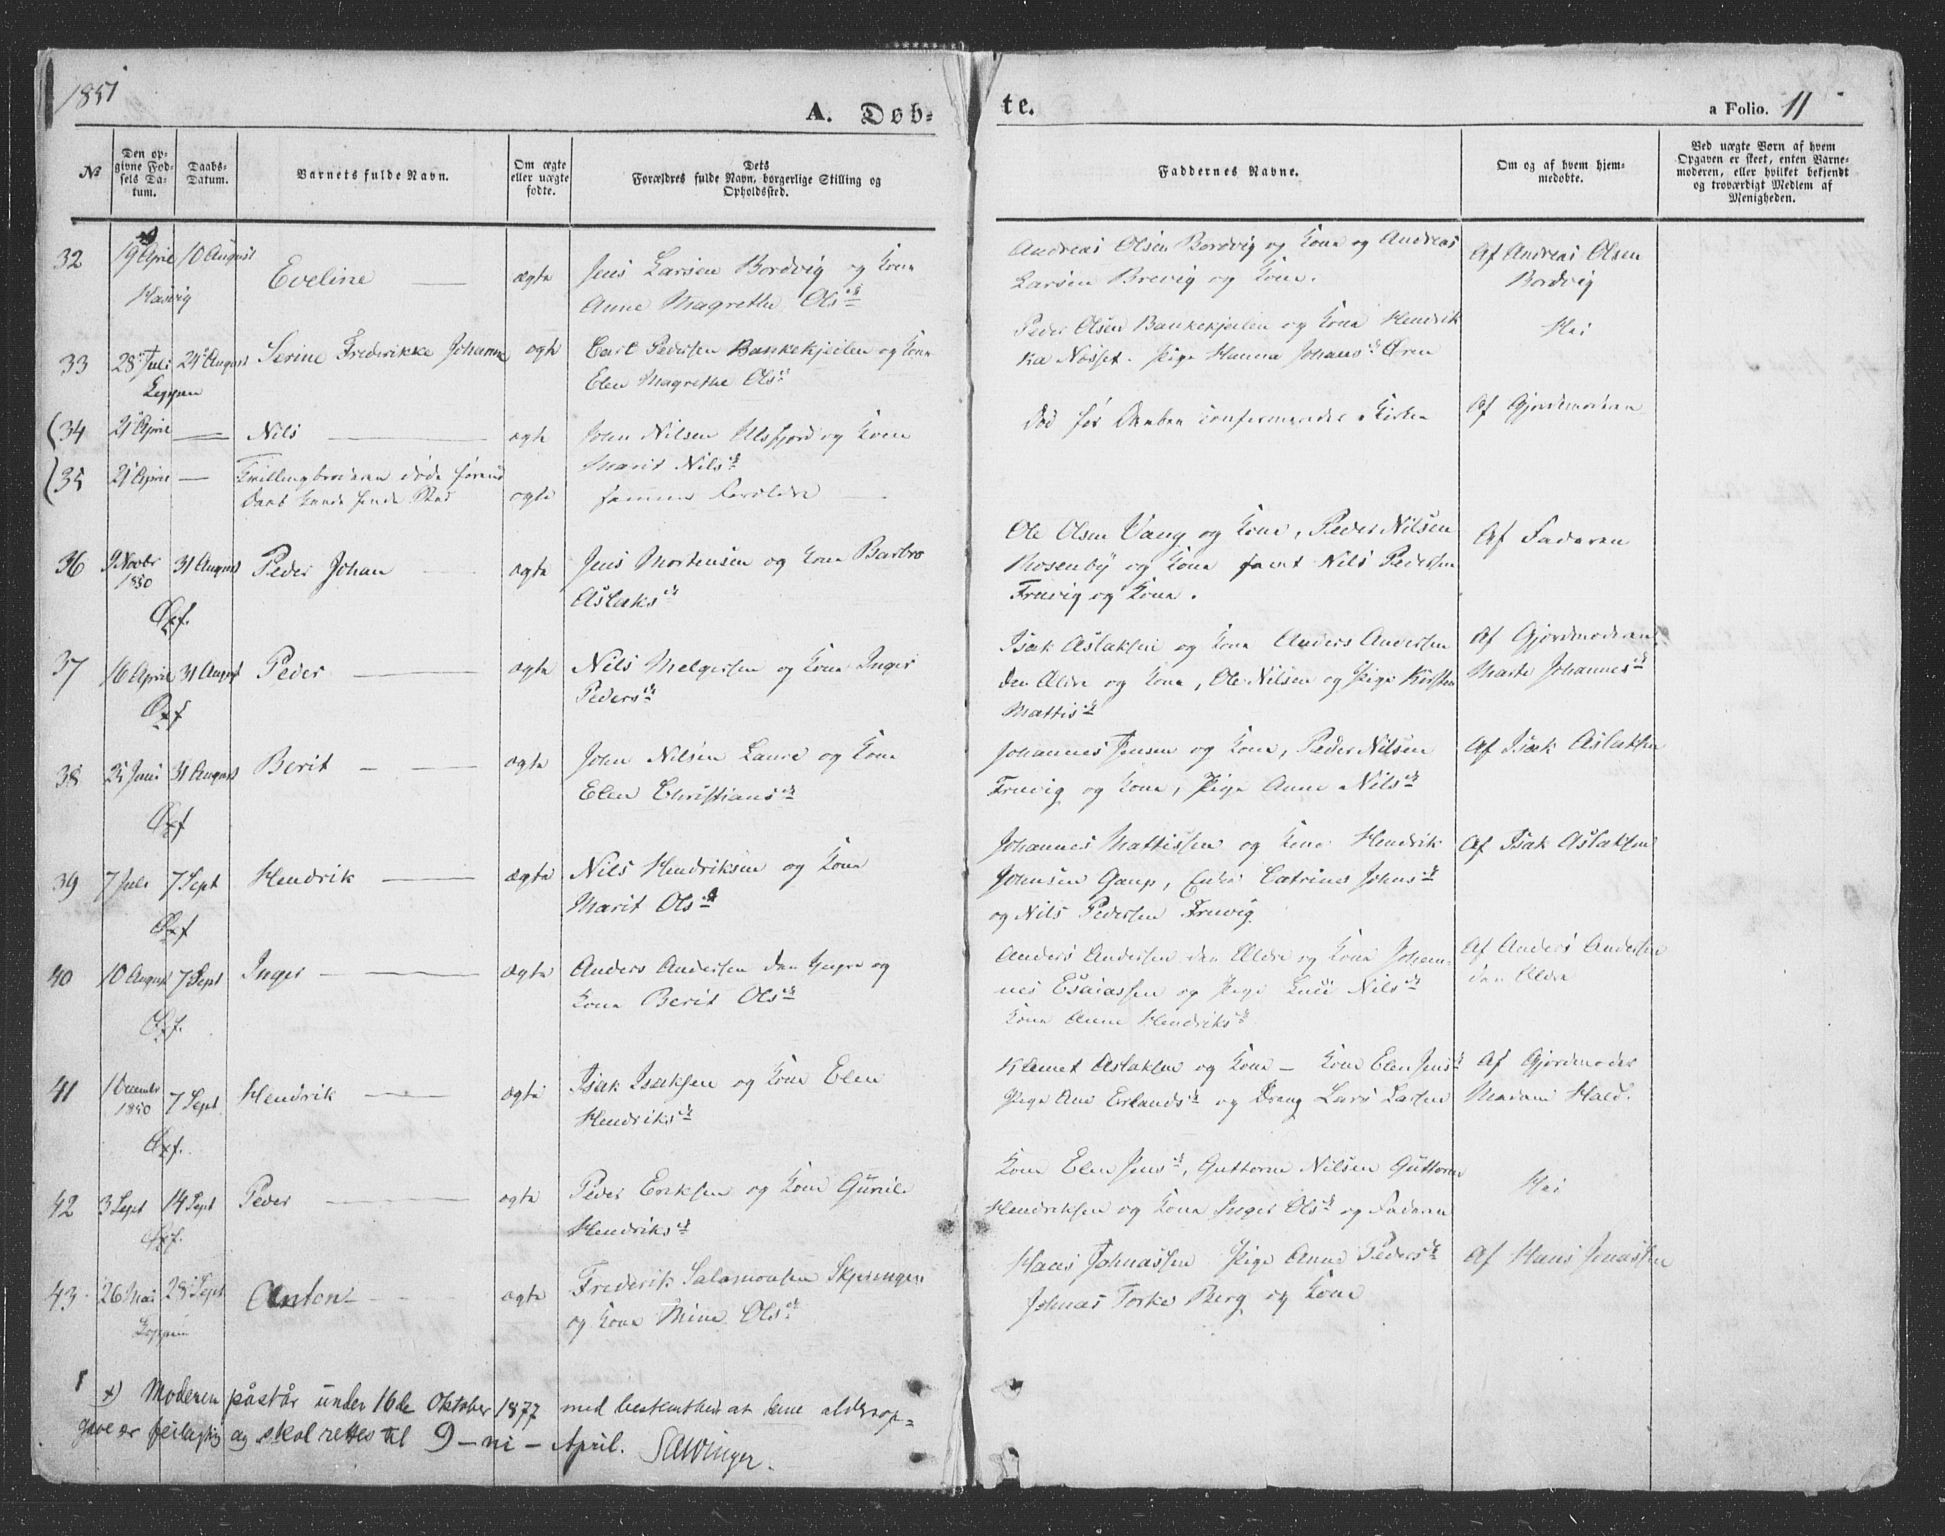 1851
A. Døb-
te.
a Folio. 11
№
Den op-
givne Fød-
sels Da-
tum.
Daabs-
Datum.
Barnets fulde Navn.
Om ægte
eller uægte
fødte.
Dets
Forældres fulde Navn, borgerlige Stilling og
Opholdssted.
Faddernes Navne.
Om og af hvem hjem-
medøbte.
Ved uægte Børn af hvem
Opgaven er skeet, enten Barne-
moderen, eller hvilket bekjendt
og troværdigt Medlem af
Menigheden.
32 19 April 10 August Eveline ægte Jens Larsen Bordvig og Kone
Hasvig
Anne Magrethe Ols
Andreas Olsen Bordvig og Kone og Andreas
Larsen Brevig og Kone.
Af Andreas Olsen
Bordvig
33 28 Juli 24 August Serine Frederikke Johanne ægte Carl Pedersen Bankekjeilen og Kone
Loppen
Elen Magrethe Ols
Peder Olsen Bankekjeilen og Kone Hendrik
ka Næsset. Pige Hanna Johans Øren
Nei
34 21 April Nils ægte John Nilsen Ulsfjord og Kone
Marit Nils
Død før Daaben confirmeredes i Kirken
Af Gjordmoderen
35 21 April Tvillingbroderen døde førend
Daab kunde finde Sted
ægte samme Forældre
36 9 Novbr 31 August Peder Johan ægte Jens Mortensen og Kone Barbro
1850
Aslaks
Øxf.
Ole Olsen Vang og Kone, Peder Nilsen
Rosenby og Kone samt Nils Pedersen
Fruvig og Kone.
Af Faderen
37 16 April 31 August Peder ægte Nils Melgersen og Kone Inger
Peders
Øxf
Isak Aslaksen og Kone Anders Andersen
den Ældre og Kone, Ole Nilsen og Pige Kirsten
Mattis
Af Gjordmoderen
Marte Johannes
38 Juni 31 August Berit ægte John Nilsen Laure og Kone
Elen Christians
Øxf
Johannes Jensen og Kone, Peder Nilsen
Fruvig og Kone, Pige Anne Nils
Af Isak Aslaksen
39 7 Juli 7 Sept Hendrik ægte Nils Hendriksen og Kone
Marit Ols
Øxf
Johannes Mattissen og Kone Hendrik
Johnsen Gaup, Enke Catrine Johns
og Nils Pedersen Fruvig
Af Isak Aslaksen
40 10 August 7 Sept Inger ægte Anders Andersen den Yngre og
Kone Berit Ols
Øxf.
Anders Andersen den Ældre og Kone Johan-
nes Esaiassen og Pige Nils
Kone Anne Hendriks
Af Anders Andersen
den Ældre
41 1 December 7 Sept Hendrik ægte Isak Isaksen og Kone Elen
1850
Hendriks
Øxf.
Klemet Aslaksen og Kone – Kone Elen Jens
Pige Ane Erlands og Dreng Lars Larsen
Af Gjordmoder
Madam Hald.
42 3 Sept 14 Sept Peder ægte Peder Eriksen og Kone Guril
Hendriks
Øxf.
Kone Elen Jens, Guttorm Nilsen Guttorm
Hendriksen og Kone Inger Ols og Faderen
Nei
43 26 Mai 28 Sept Anton ægte Frederik Salamonsen Skjeringen
Loppen
og Kone Mine Ols
Hans Johnassen Pige Anne Peders
Johnas Torke Berg og Kone
Af Hans Jonassen
x) Moderen påstår under 16de Oktober 1877 med bestemthed at denne aldersop=
gave er feilagtig og skal rettes til 9 – ni – April.